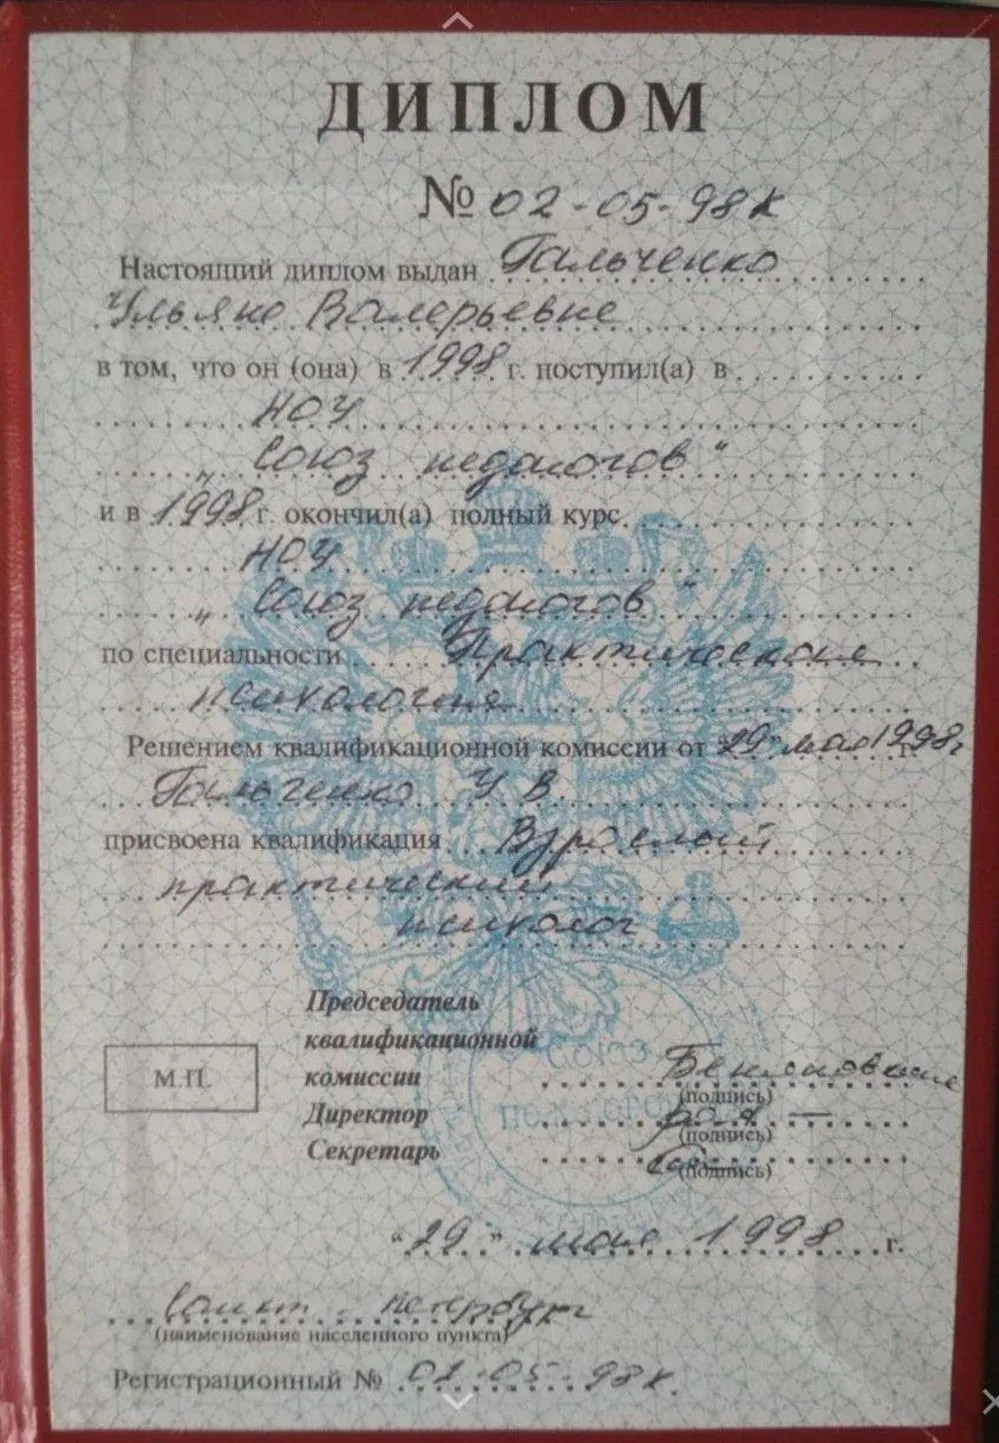 ДИПЛОМ
№ 02-05-98К
Настоящий диплом выдан Гальченко
Ульяне Валерьевне
в том, что он (она) в 1998 г. поступил(а) в
НОУ
"Союз педагогов"
и в 1998 г. окончил(а) полный курс
НОУ
"Союз педагогов"
по специальности Практическая
психология
Решением квалификационной комиссии от "29" мая 1998 г.
Гальченко У В
присвоена квалификация Взрослый
практический
психолог
Председатель
квалификационной
комиссии
(подпись)
М.П.
Директор
(подпись)
Секретарь
(подпись)
Союз
педагогов
"29" мая 1998 г.
Санкт-Петербург
(наименование населенного пункта)
Регистрационный № 01-05-98К.